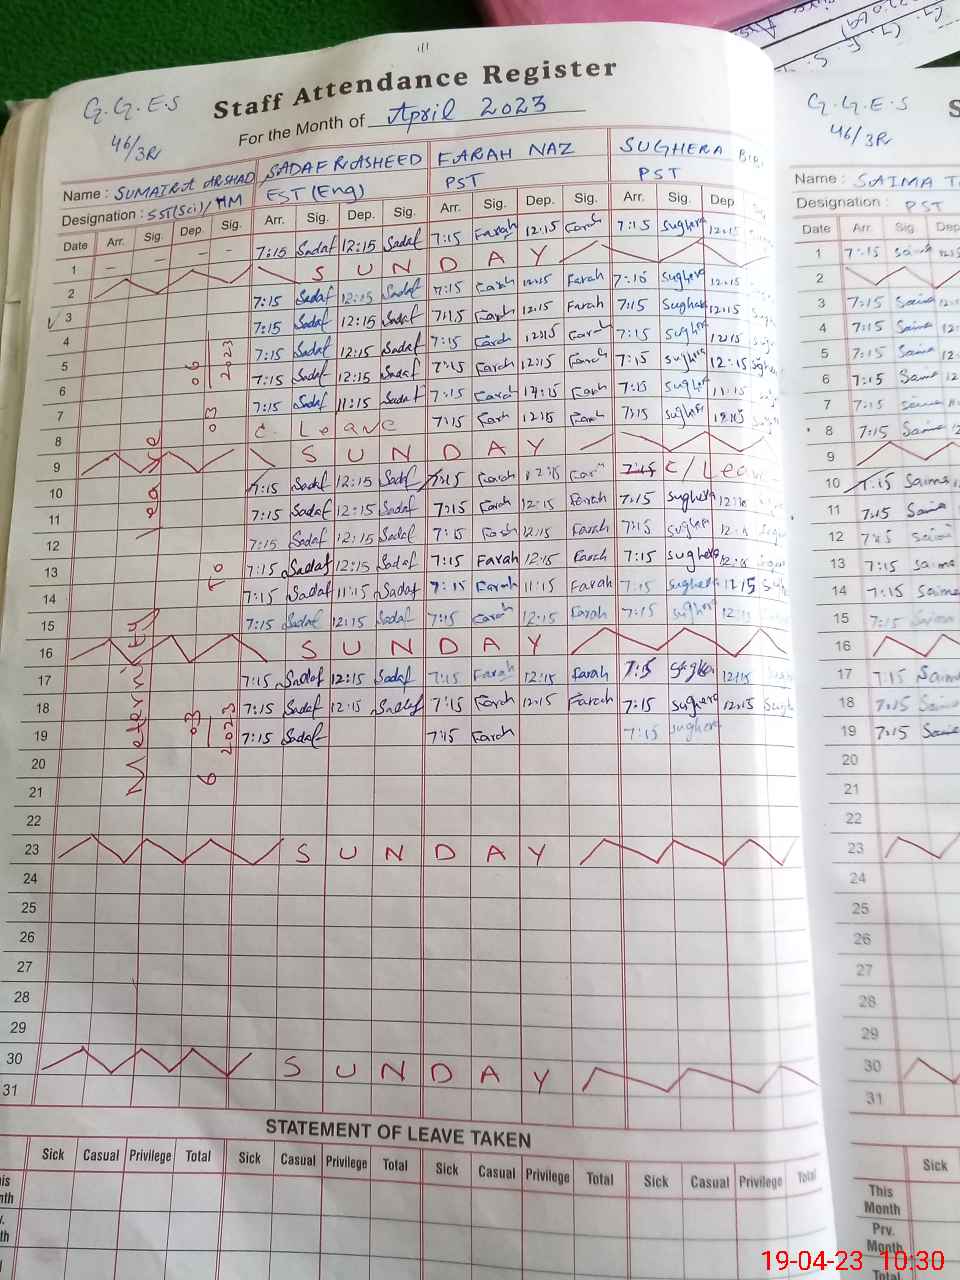 G.G.E.S
46/3R
Staff Attendance Register
For the Month of April 2023
Name : SUMAIRA ARSHAD SADAF RASHEED FARAH NAZ SUGHERA BIBI
Designation : SST(Sci)/HM EST (Eng) PST PST
Date Arr. Sig. Dep. Sig. Arr. Sig. Dep. Sig. Arr. Sig. Dep. Sig. Arr. Sig. Dep
1 – – – – 7:15 Sadaf 12:15 Sadaf 7:15 Farah 12:15 Farah 7:15 Sughera 12:15
2 S U N D A Y
3 7:15 Sadaf 12:15 Sadaf 7:15 Farah 12:15 Farah 7:15 Sughera 12:15
4 7:15 Sadaf 12:15 Sadaf 7:15 Farah 12:15 Farah 7:15 Sughera 12:15
5 7:15 Sadaf 12:15 Sadaf 7:15 Farah 12:15 Farah 7:15 Sughera 12:15
6 7:15 Sadaf 12:15 Sadaf 7:15 Farah 12:15 Farah 7:15 Sughera 12:15
7 7:15 Sadaf 11:15 Sadaf 7:15 Farah Farah 7:15 Sughera 11:15
8 C. Leave 7:15 Farah 12:15 Farah 7:15 Sughera
9 S U N D A Y
10 7:15 Sadaf 12:15 Sadaf 7:15 Farah 12:15 Farah 7:15 C/Leave
11 7:15 Sadaf 12:15 Sadaf 7:15 Farah 12:15 Farah 7:15 Sughera
12 7:15 Sadaf 12:15 Sadaf 7:15 Farah 12:15 Farah 7:15 Sughera
13 7:15 Sadaf 12:15 Sadaf 7:15 Farah 12:15 Farah 7:15 Sughera
14 7:15 Sadaf 11:15 Sadaf 7:15 Farah 11:15 Farah 7:15 Sughera 12:15
15 7:15 Sadaf 12:15 Sadaf 7:15 Farah 12:15 Farah 7:15 Sughera
16 S U N D A Y
17 7:15 Sadaf 12:15 Sadaf 7:15 Farah 12:15 Farah 7:15 Sughera 12:15
18 7:15 Sadaf 12:15 Sadaf 7:15 Farah 12:15 Farah 7:15 Sughera 12:15
19 7:15 Sadaf 7:15 Farah 7:15 Sughera
20
21
22
23 S U N D A Y
24
25
26
27
28
29
30 S U N D A Y
31
Maternity Leave
6 03 2023 To 03 06 2023
STATEMENT OF LEAVE TAKEN
Sick Casual Privilege Total Sick Casual Privilege Total Sick Casual Privilege Total Sick Casual Privilege Total
G.G.E.S
46/3R
Name : SAIMA
Designation : PST
Date Arr. Sig. Dep
1 7:15 Saima
2
3 7:15 Saima
4 7:15 Saima 12:
5 7:15 Saima 12:
6 7:15 Saima
7 7:15 Saima
8 7:15 Saima
9
10 7:15 Saima
11 7:15 Saima
12 7:15 Saima
13 7:15 Saima
14 7:15 Saima
15 7:15 Saima
16
17 7:15 Saima
18 7:15 Saima
19 7:15 Saima
20
21
22
23
24
25
26
27
28
29
30
31
Sick
This Month
Prv. Month
Total
19-04-23 10:30